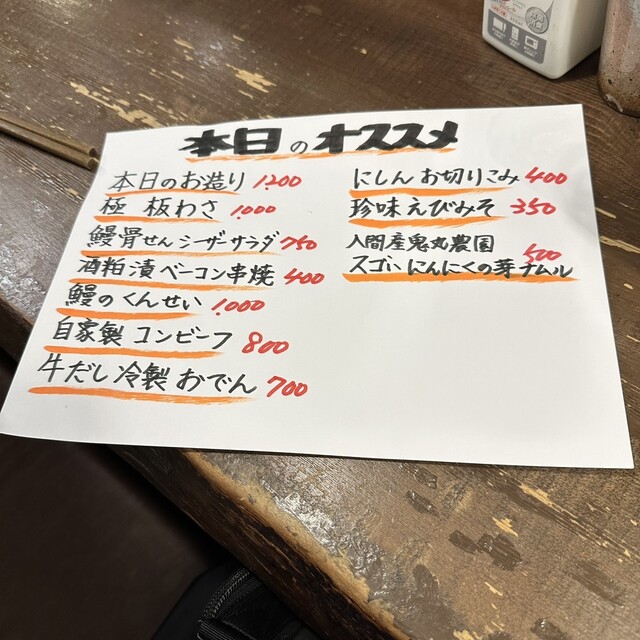 本日のオススメ
本日のお造り 1200
極 板わさ 1,000
鰻骨せんシーザーサラダ 750
酒粕漬ベーコン串焼 400
鰻のくんせい 1,000
自家製コンビーフ 800
牛だし冷製おでん 700
にしんお切りこみ 400
珍味えびみそ 350
入間産鬼丸農園
スゴいにんにくの芽ナムル 500